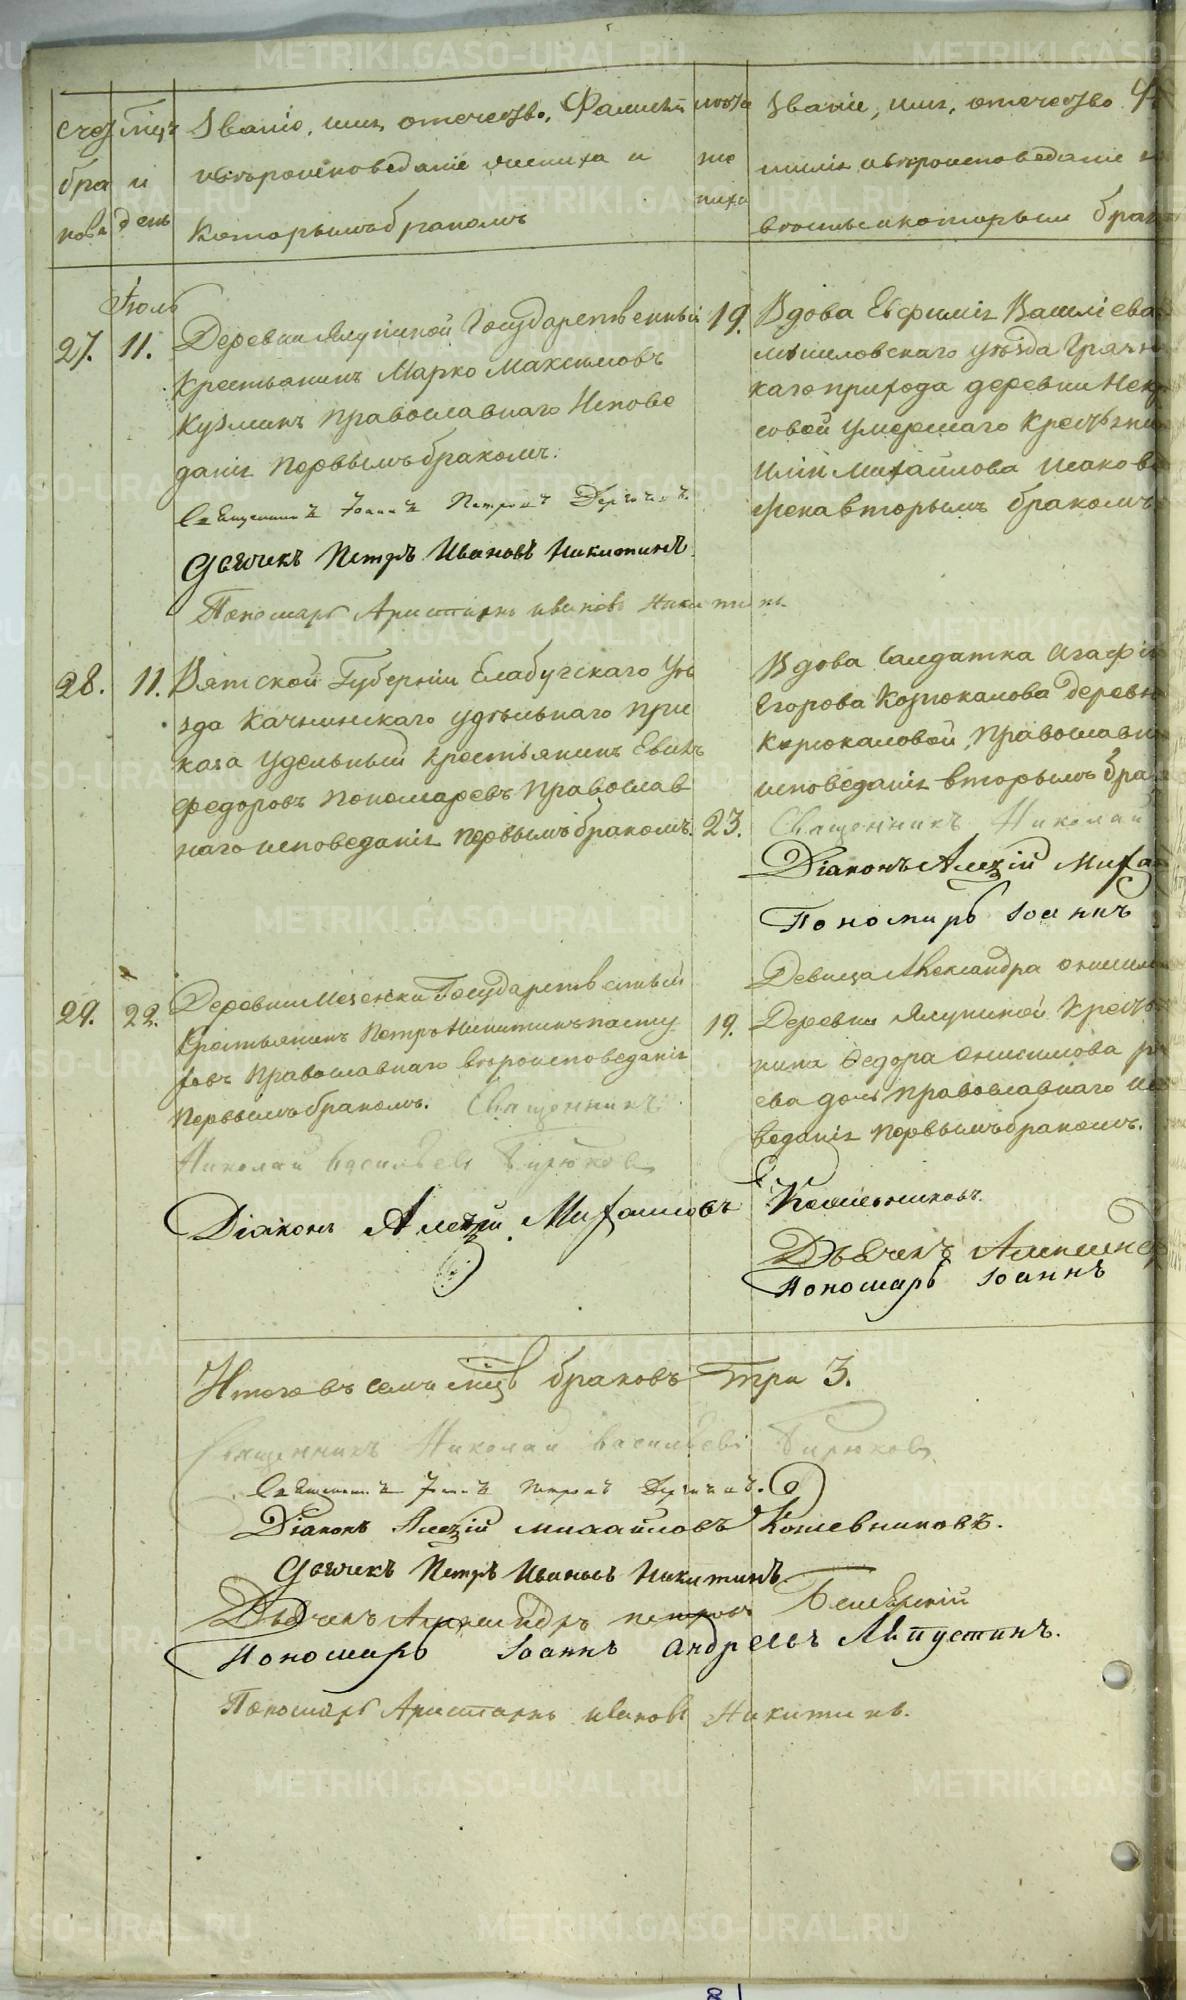 Счет бра ковъ
Мцъ и день
Званіе, имя, отечество, Фамилія
и вѣроисповеданіе жениха и
которымъ бракомъ
лѣта же ниха
Званіе, имя, отечество
милія и вѣроисповеданіе
весты и которымъ брак
Іюль
27. 11.
Деревни Ялуниной Государственный
Крестьянинъ Марко Максимовъ
Кузминъ Православнаго Испове
данія Первымъ бракомъ.
Священникъ Іоаннъ Петровъ
Дьячекъ Петръ Ивановъ Никитинъ
Пономарь Аристархъ Ивановъ Никитинъ.
19.
Вдова Евфимія Василіева
уѣзда
каго прихода деревни Некр
совой умершаго Крестьянин
Иліи Михайлова Исакова
жена вторымъ бракомъ
28. 11.
Вятской Губерніи Елабугскаго Уѣ
зда удѣльнаго при
каза Удельный крестьянинъ
Федоровъ Пономаревъ Православ
наго исповеданія первымъ бракомъ.
23.
Вдова Салдатка Агафія
Егорова деревн
Православн
исповеданія вторымъ бра
Священникъ Николай
Діаконъ Алезій Миха
Пономарь Іоаннъ
29. 22.
Деревни Государственный
Крестьянинъ Петръ Никитинъ Пасту
ховъ Православнаго вѣроисповеданія
Первымъ бракомъ. Священникъ
Николай Васильевъ Бирюковъ
Діаконъ Алезій Михайловъ
19.
Девица Александра Онисим
Деревни Ялуниной Крестья
нина Федора Онисимова
ева дочь православнаго испо
веданія первымъ бракомъ.
Кожевниковъ.
Дьячекъ Александр
Пономарь Іоаннъ
Итого въ семъ мцѣ браковъ Три 3.
Священникъ Николай Васильевъ Бирюковъ
Священникъ Іоаннъ Петровъ
Діаконъ Алезій Михайловъ Кожевниковъ.
Дьячекъ Петръ Ивановъ Никитинъ
Дьячекъ Александръ Петровъ
Пономарь Іоаннъ Андреевъ Августинъ.
Пономарь Аристархъ Ивановъ Никитинъ.
METRIKI.GASO-URAL.RU